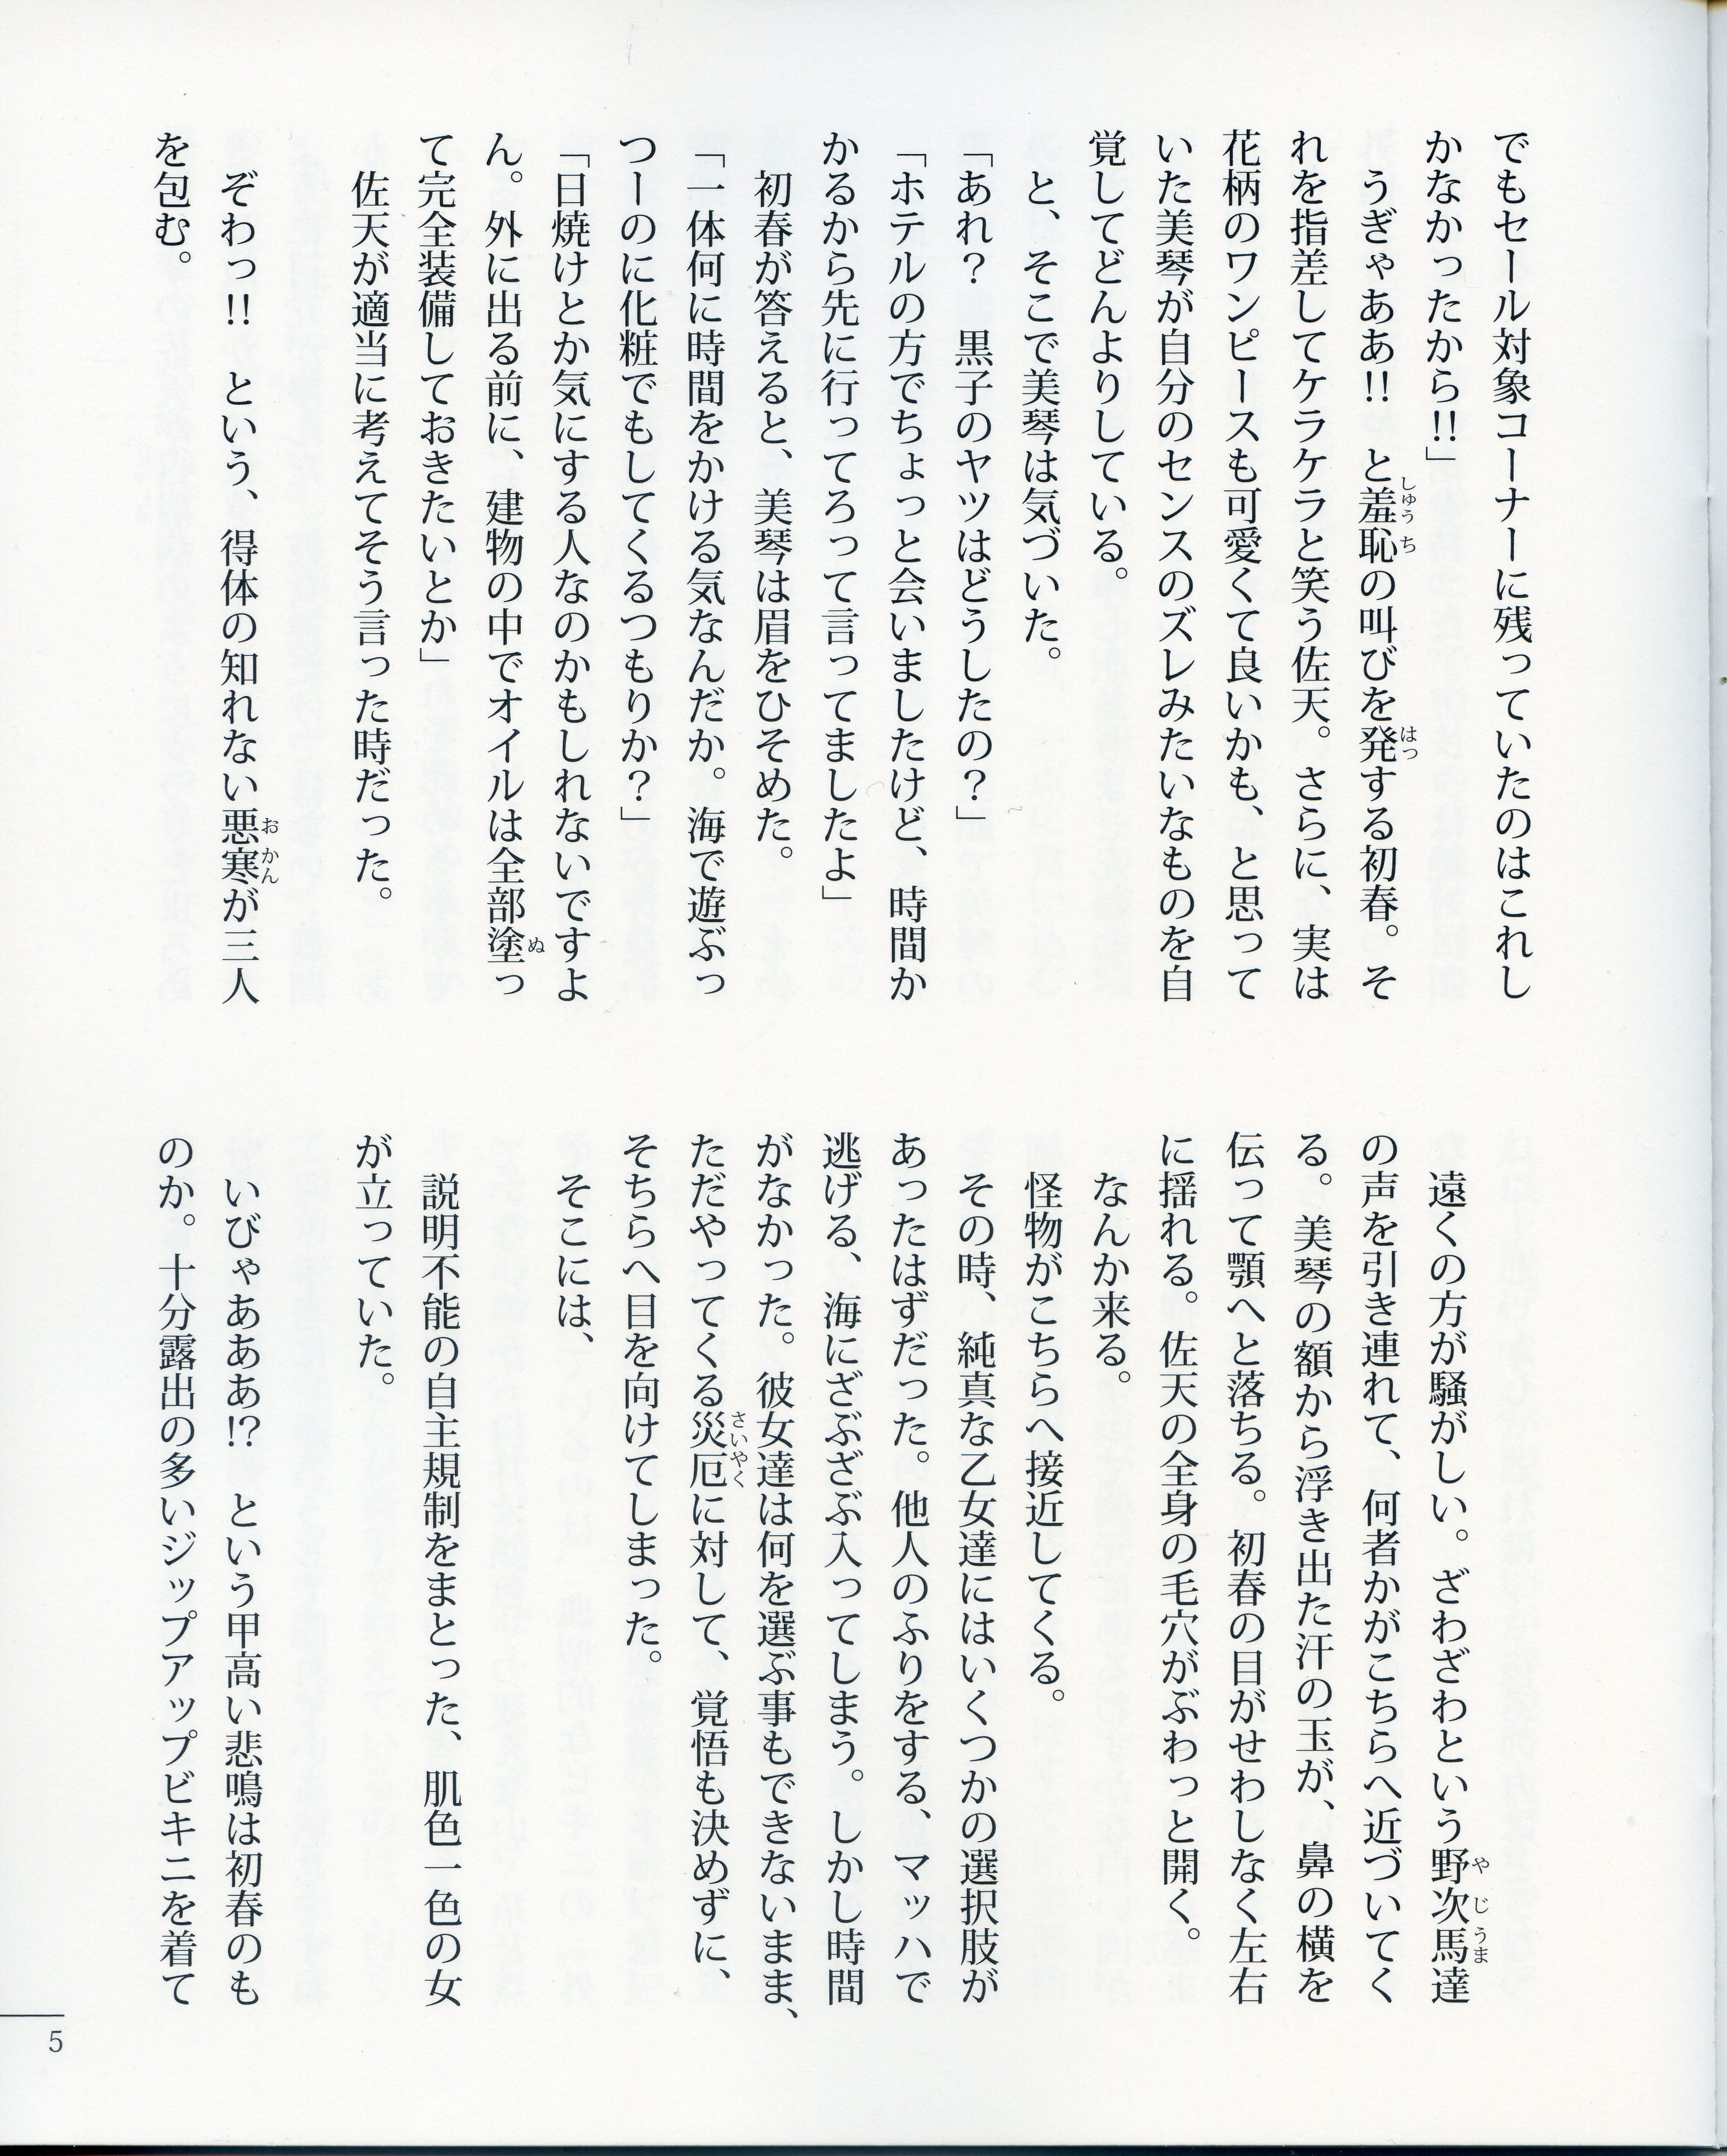 でもセール対象コーナーに残っていたのはこれし
かなかったから!!」
　うぎゃああ!!　と羞恥の叫びを発する初春。そ
れを指差してケラケラと笑う佐天。さらに、実は
花柄のワンピースも可愛くて良いかも、と思って
いた美琴が自分のセンスのズレみたいなものを自
覚してどんよりしている。
　と、そこで美琴は気づいた。
「あれ？　黒子のヤツはどうしたの？」
「ホテルの方でちょっと会いましたけど、時間か
かるから先に行ってろって言ってましたよ」
　初春が答えると、美琴は眉をひそめた。
「一体何に時間をかける気なんだか。海で遊ぶっ
つーのに化粧でもしてくるつもりか？」
「日焼けとか気にする人なのかもしれないですよ
ん。外に出る前に、建物の中でオイルは全部塗っ
て完全装備しておきたいとか」
　佐天が適当に考えてそう言った時だった。
　ぞわっ!!　という、得体の知れない悪寒が三人
を包む。
　遠くの方が騒がしい。ざわざわという野次馬達
の声を引き連れて、何者かがこちらへ近づいてく
る。美琴の額から浮き出た汗の玉が、鼻の横を
伝って顎へと落ちる。初春の目がせわしなく左右
に揺れる。佐天の全身の毛穴がぶわっと開く。
　なんか来る。
　怪物がこちらへ接近してくる。
　その時、純真な乙女達にはいくつかの選択肢が
あったはずだった。他人のふりをする、マッハで
逃げる、海にざぶざぶ入ってしまう。しかし時間
がなかった。彼女達は何を選ぶ事もできないまま、
ただやってくる災厄に対して、覚悟も決めずに、
そちらへ目を向けてしまった。
　そこには、
　説明不能の自主規制をまとった、肌色一色の女
が立っていた。
　いびゃあああ!?　という甲高い悲鳴は初春のも
のか。十分露出の多いジップアップビキニを着て
5